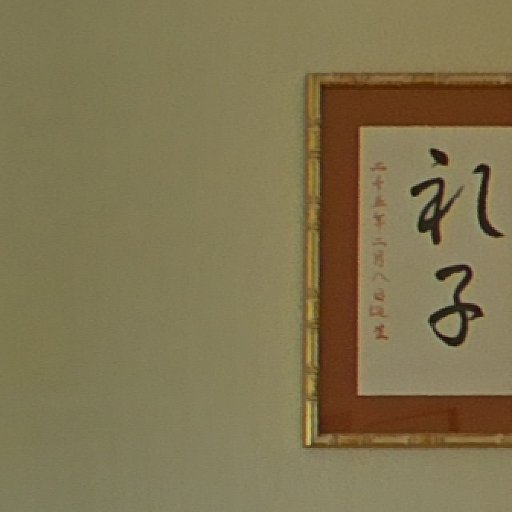 礼子
二十五年二月八日誕生